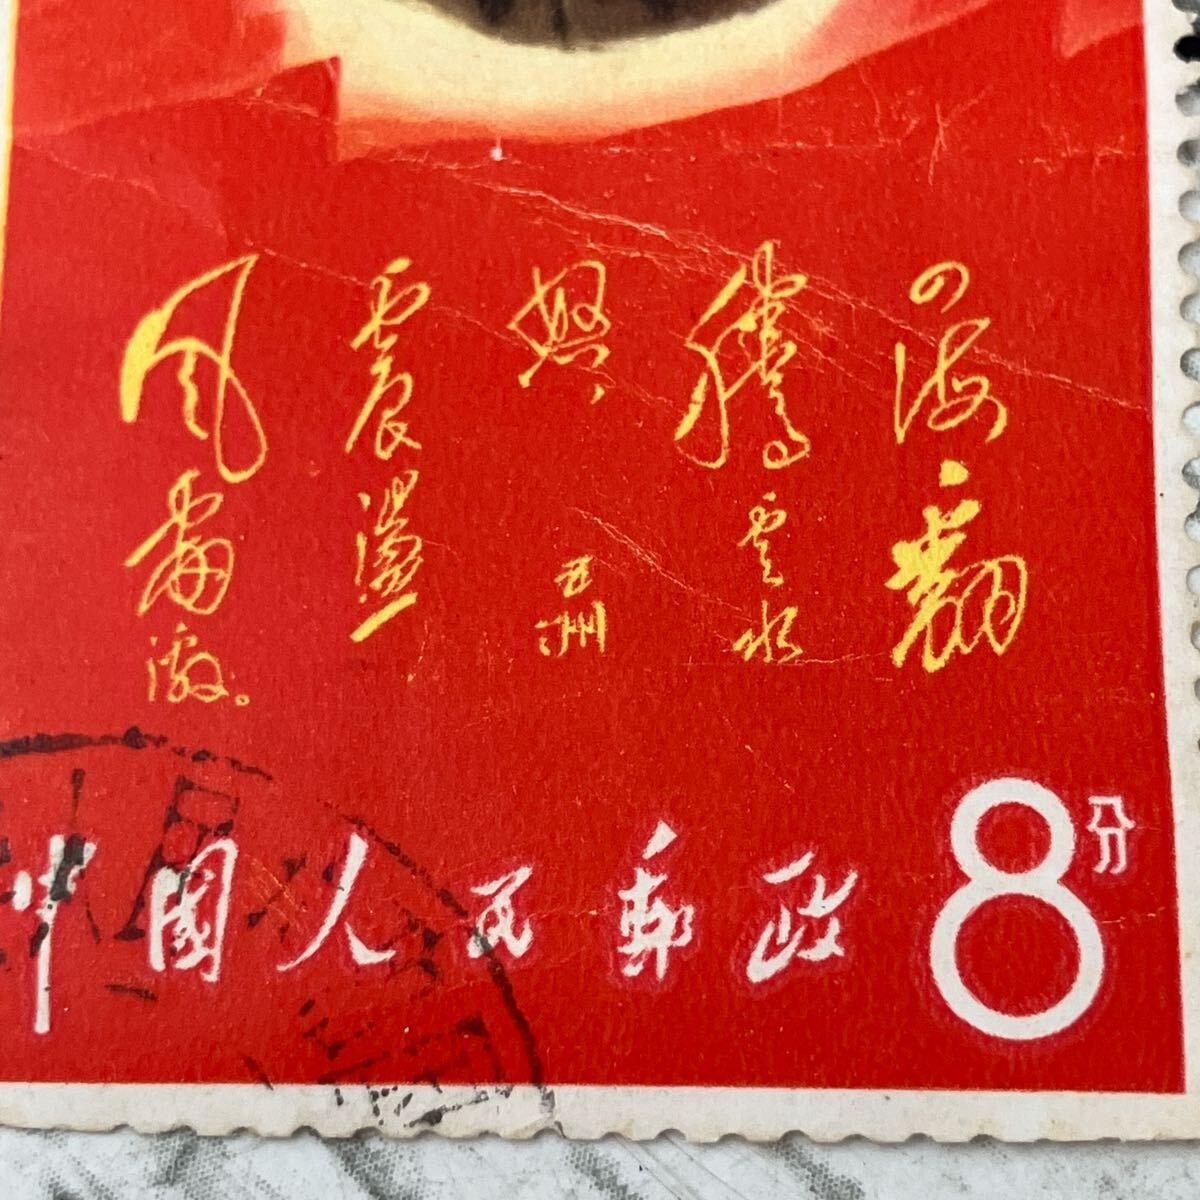 四海翻
腾云水
怒 五洲
震盪
风雷激。
中国人民邮政 8分